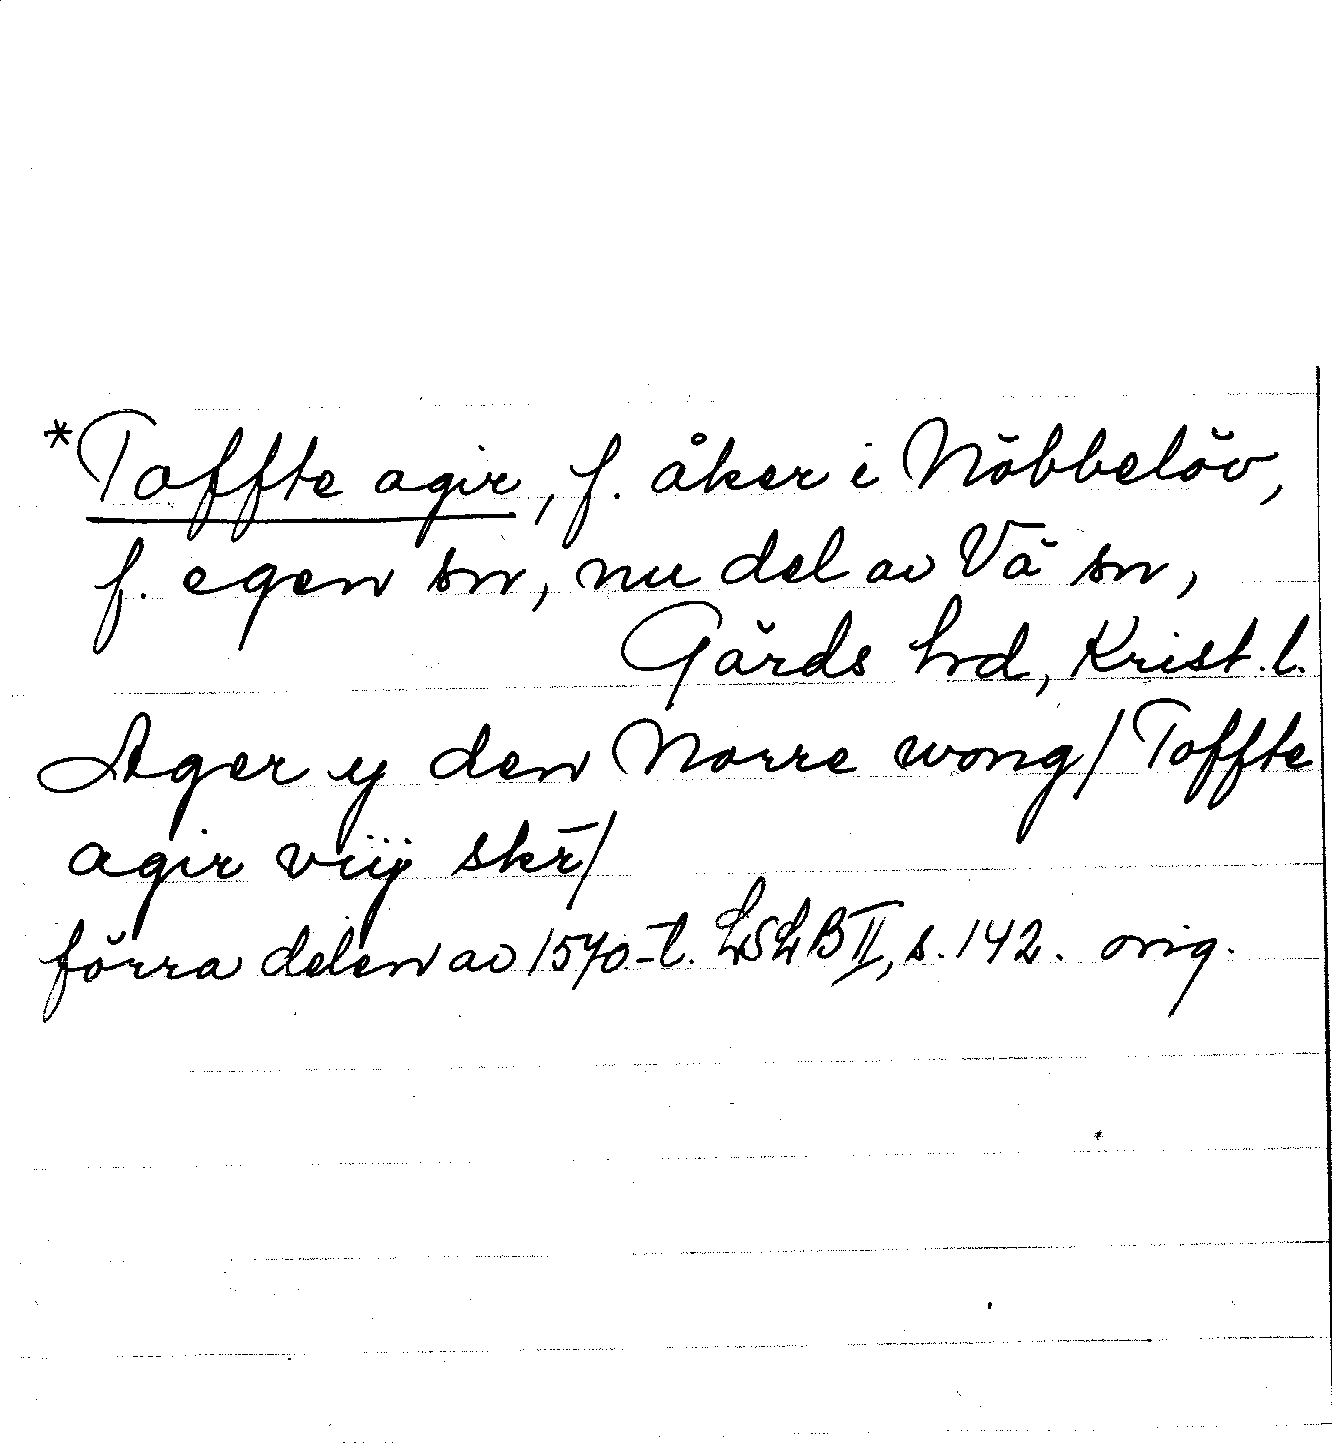 *Toffte agir, f. åker i Nöbbelöv,
f. egen sn, nu del av Vä sn,
Gärds hrd, Krist. l.
Ager y den Norre wong / Toffte
agir viij skr̄ /
förra delen av 1570-t. LSLB II, s. 142. orig.